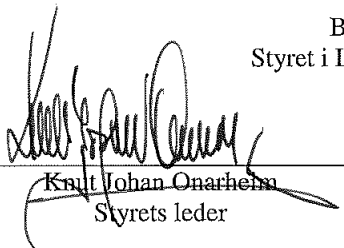 B
Styret i L
Knut Johan Onarheim
Styrets leder